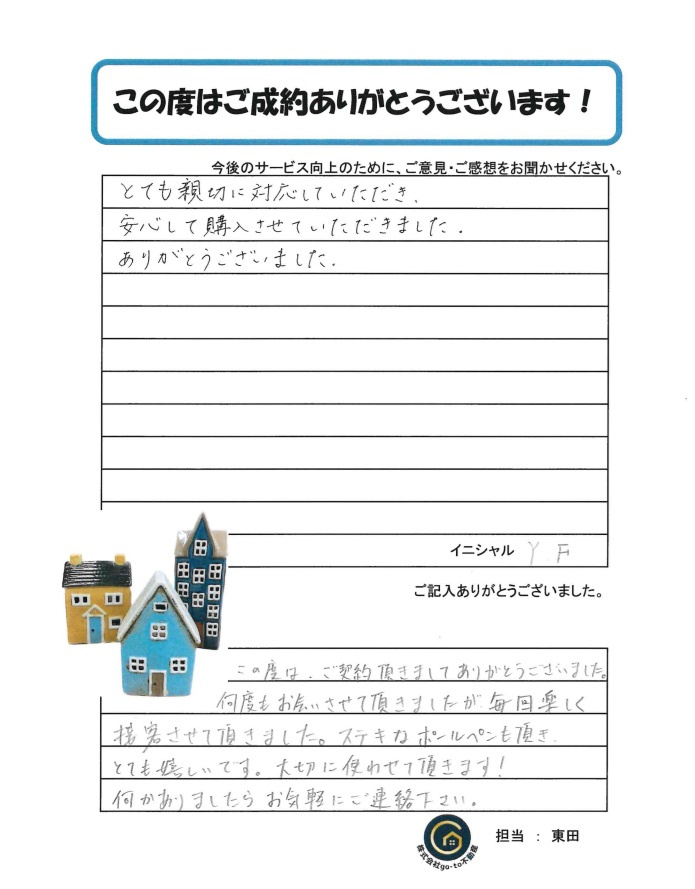 この度はご成約ありがとうございます！
今後のサービス向上のために、ご意見・ご感想をお聞かせください。
とても親切に対応していただき、
安心して購入させていただきました。
ありがとうございました。
イニシャル Y.F
ご記入ありがとうございました。
この度は、ご契約頂きましてありがとうございました。
何度もお会いさせて頂きましたが、毎回楽しく
接客させて頂きました。ステキなボールペンも頂き、
とても嬉しいです。大切に使わせて頂きます！
何かありましたらお気軽にご連絡下さい。
株式会社go-to不動産
担当 ： 東田